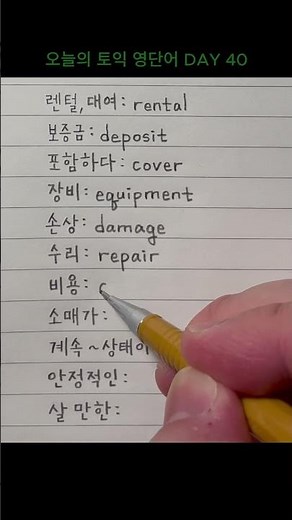 오늘의 토익 영단어 DAY 40
렌털,대여: rental
보증금: deposit
포함하다: cover
장비: equipment
손상: damage
수리: repair
비용: c
소매가:
계속~상태이
안정적인:
살 만한: